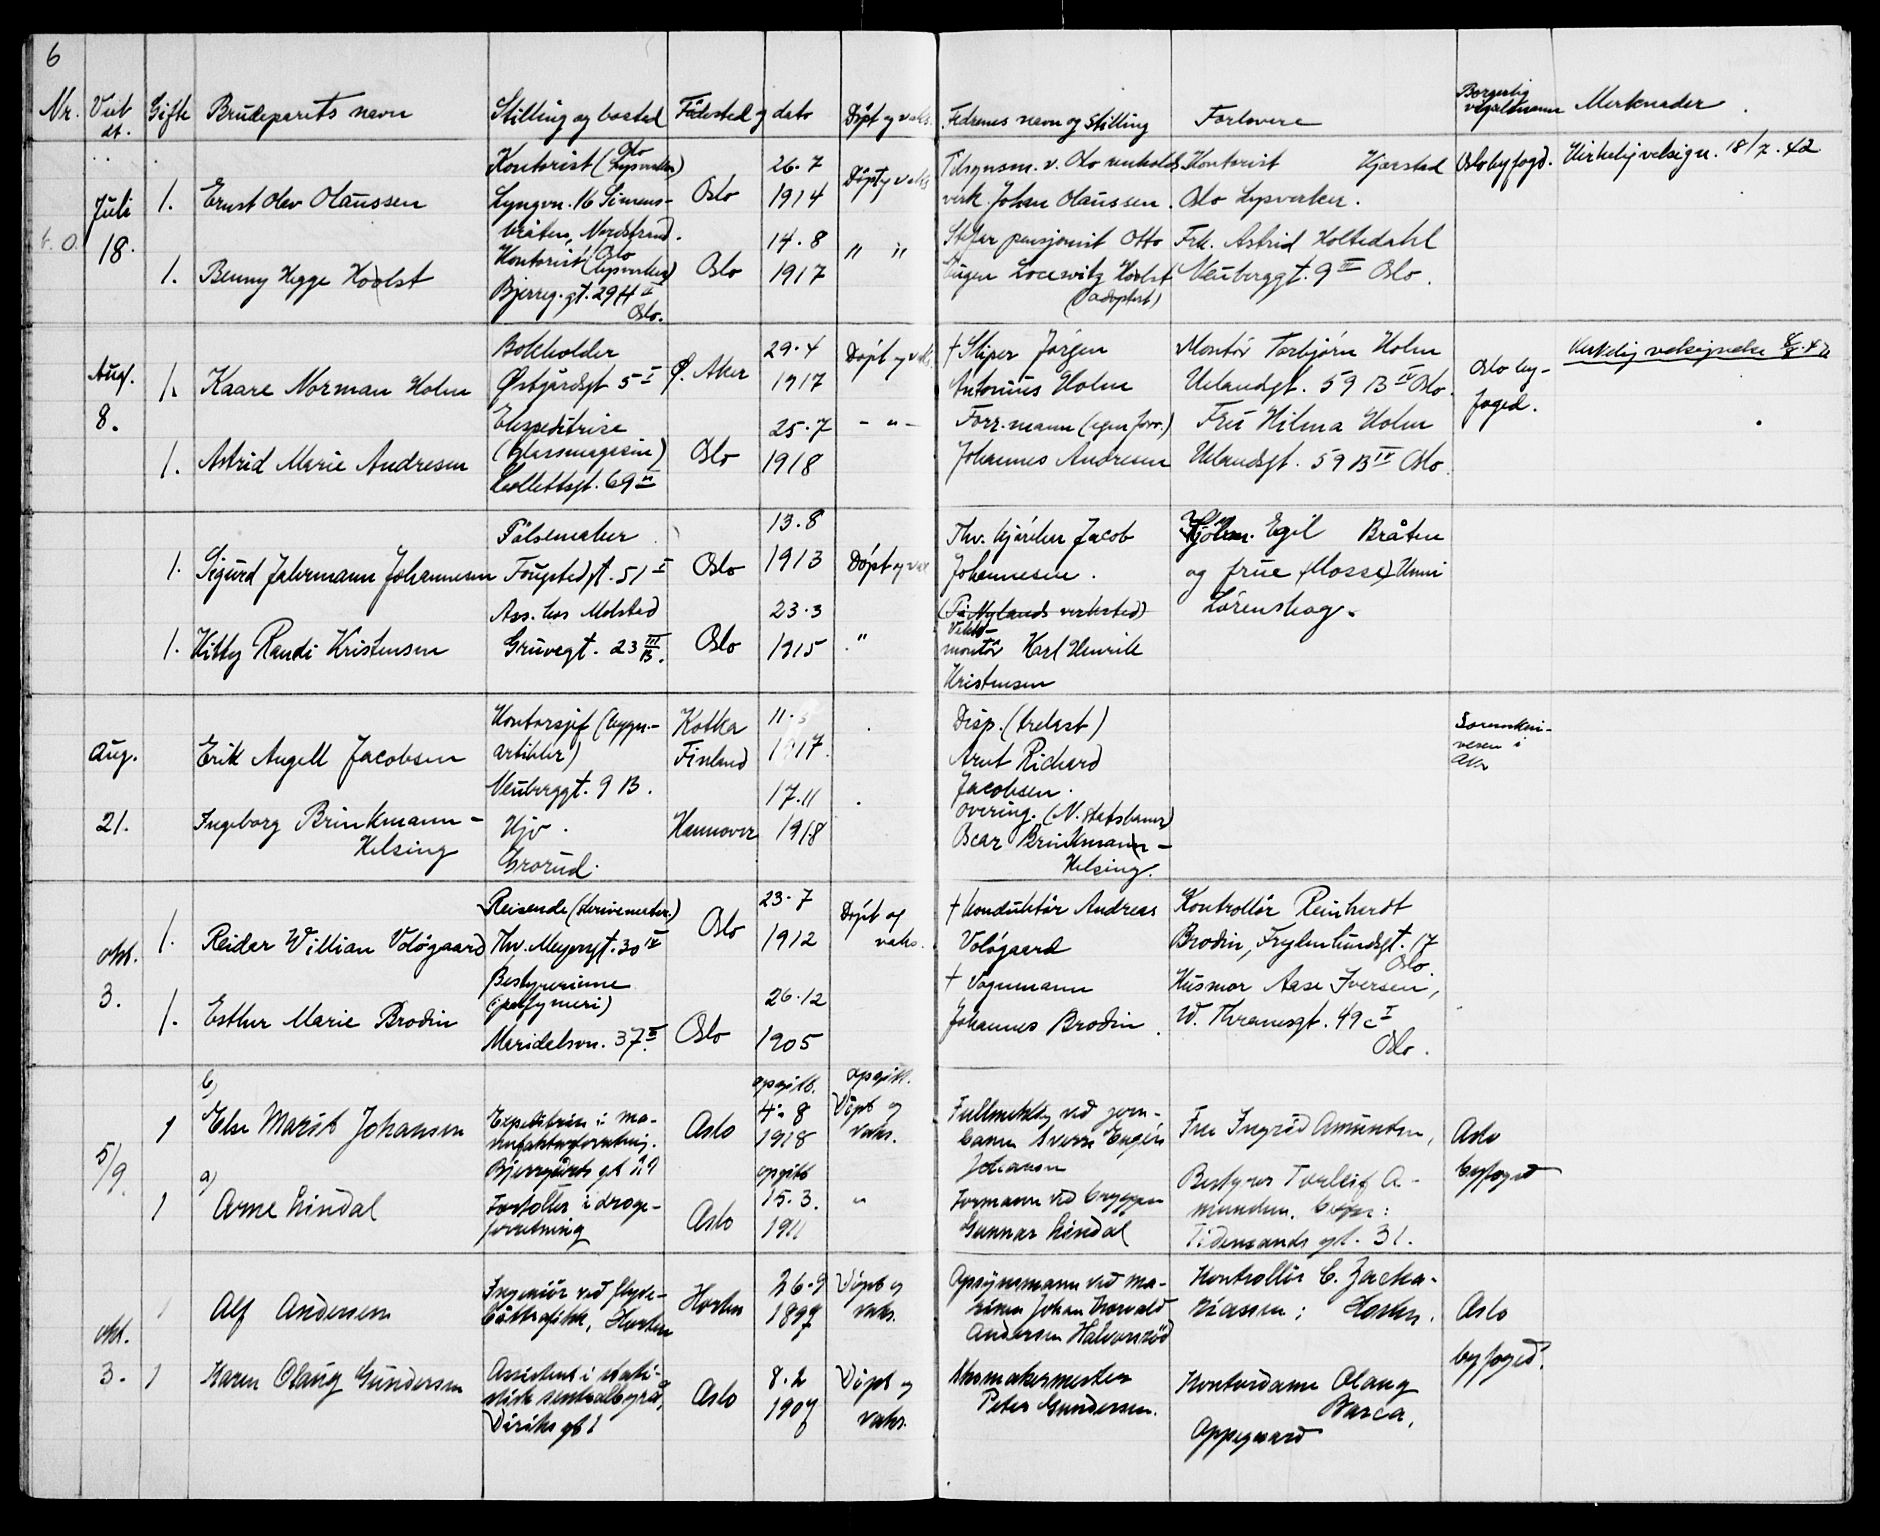 6
Nr. Viet dt. Gifte Brudeparets navn Stilling og bosted Födested og dato Döpt og vaks. Fedrenes navn og stilling Forlovere Borgerlig Merknader
Juli 18.
1. Ernst Olav Olaussen
Kontorist (Oslo Lysverker)
Lyngvn. 16 Simens-
bråten, Nordstrand.
Oslo
26.7
1914
Döpt og vaks
Tilsynsm. v. Oslo renholds
verk. Johan Olaussen.
Kontorist Hjarstad
Oslo Lysverker.
Oslo byfogd.
Kirkelig velsign. 18/7.42
1. Benny Hegge Holst
Kontorist (Oslo Lysverker)
Bjerreg.gt. 29 H
Oslo.
Oslo
14.8
1917
" "
pensjonist Otto
Eugen Holst
(adoptert)
Frk. Astrid Holtedahl
Neuberggt. 9 III Oslo.
Aug.
8.
1. Kaare Norman Holm
Bokholder
Østgårdsgt 5 I
Ø. Aker
29.4
1917
Döpt og vaks.
† Skiper Jörgen
Antonius Holm
Montör Torbjörn Holm
Uelandsgt. 59 B IV Oslo.
Oslo by-
foged.
Kirkelig velsignelse
1. Astrid Marie Andresen
Ekspeditrise
(Glassmagasin)
Collettsgt. 69 III
Oslo
25.7
1918
- " -
Forr.mann (egen forr.)
Johannes Andresen
Fru Hilma Holm
Uelandsgt. 59 B IV Oslo.
1. Sigurd Jahrmann Johannesen
Pölsemaker
Fougstedgt. 51 I
Oslo
13.8
1913
Döpt og vak
Thv. kjörer Jacob
Johannesen.
Egil Bråten
og frue (Mosse) Unni
Lörenskog.
1. Kitty Randi Kristensen
Ass. hos Molstad
Grüvegt. 23 III B.
Oslo
23.3
1915
"
(På Nylands verksted)
montör Karl Henrik
Kristensen
Aug.
21.
Erik Angell Jacobsen
Kontorsjef (bygn.-
artikler)
Neuberggt. 9 B.
Kotka
Finland
1917.
Disp. (trelast)
Arnt Richard
Jacobsen.
Sorenskri-
veren i
Aker
Ingeborg Brinkmann-
Helsing
Hjv.
Grorud.
Hannover
17.11
1918
Overing. (N. Statsbaner)
Oscar Brinkmann-
Helsing.
Okt.
3.
1. Reidar Willian Volögaard
Reisende (skrivemaskr.)
Thv. Meyersgt. 30 IV
Oslo
23.7
1912
Döpt og
vaks.
† Konduktör Andreas
Volögaard
Kontrollör Reinhardt
Brodin, Frydenlundsgt. 17
Oslo.
1. Esther Marie Brodin
Bestyrerinne
(i parfymeri)
Maridalsvn. 37 II
Oslo
26.12
1905
† Vognmann
Johannes Brodin.
Husmor Aase Iversen,
W. Thranesgt. 49 c I
Oslo.
5/9.
b)
1 Else Marit Johansen
Expeditrise i ma-
nufakturforretning.
Oslo
opgitt.
4.8
1918
opgitt.
Döpt og
vaks.
Fullmektig ved jern-
banen Sverre Eugen
Johansen
Fru Ingrid Amundsen,
Oslo
byfoged
a)
1 Arne Lindal
Forkoller i droge-
forretning
Oslo
opgitt
15.3.
1911
"
Formann ved bryggen
Gunnar Lindal
Bestyrer Torleif A-
mundsen, begge:
Tidemands gt. 31.
Okt.
3.
1 Alf Andersen
Ingeniör ved flyve-
båtfabrikk, Horten
Horten
26.9
1897
Döpt og
vaks.
Opsynsmann ved ma-
rinen Johan Thorvald
Andersen Halvorsröd
Kontrollör C. Zacha-
riassen; Horten.
Oslo
byfoged.
1 Karen Olaug Gundersen
Assistent i stati-
stisk sentralbyrå,
Diriks gt 1
Oslo
8.2
1907
Döpt og
vaks.
Skomakermester
Peter Gundersen.
Kontordame Olaug
Oppegaard